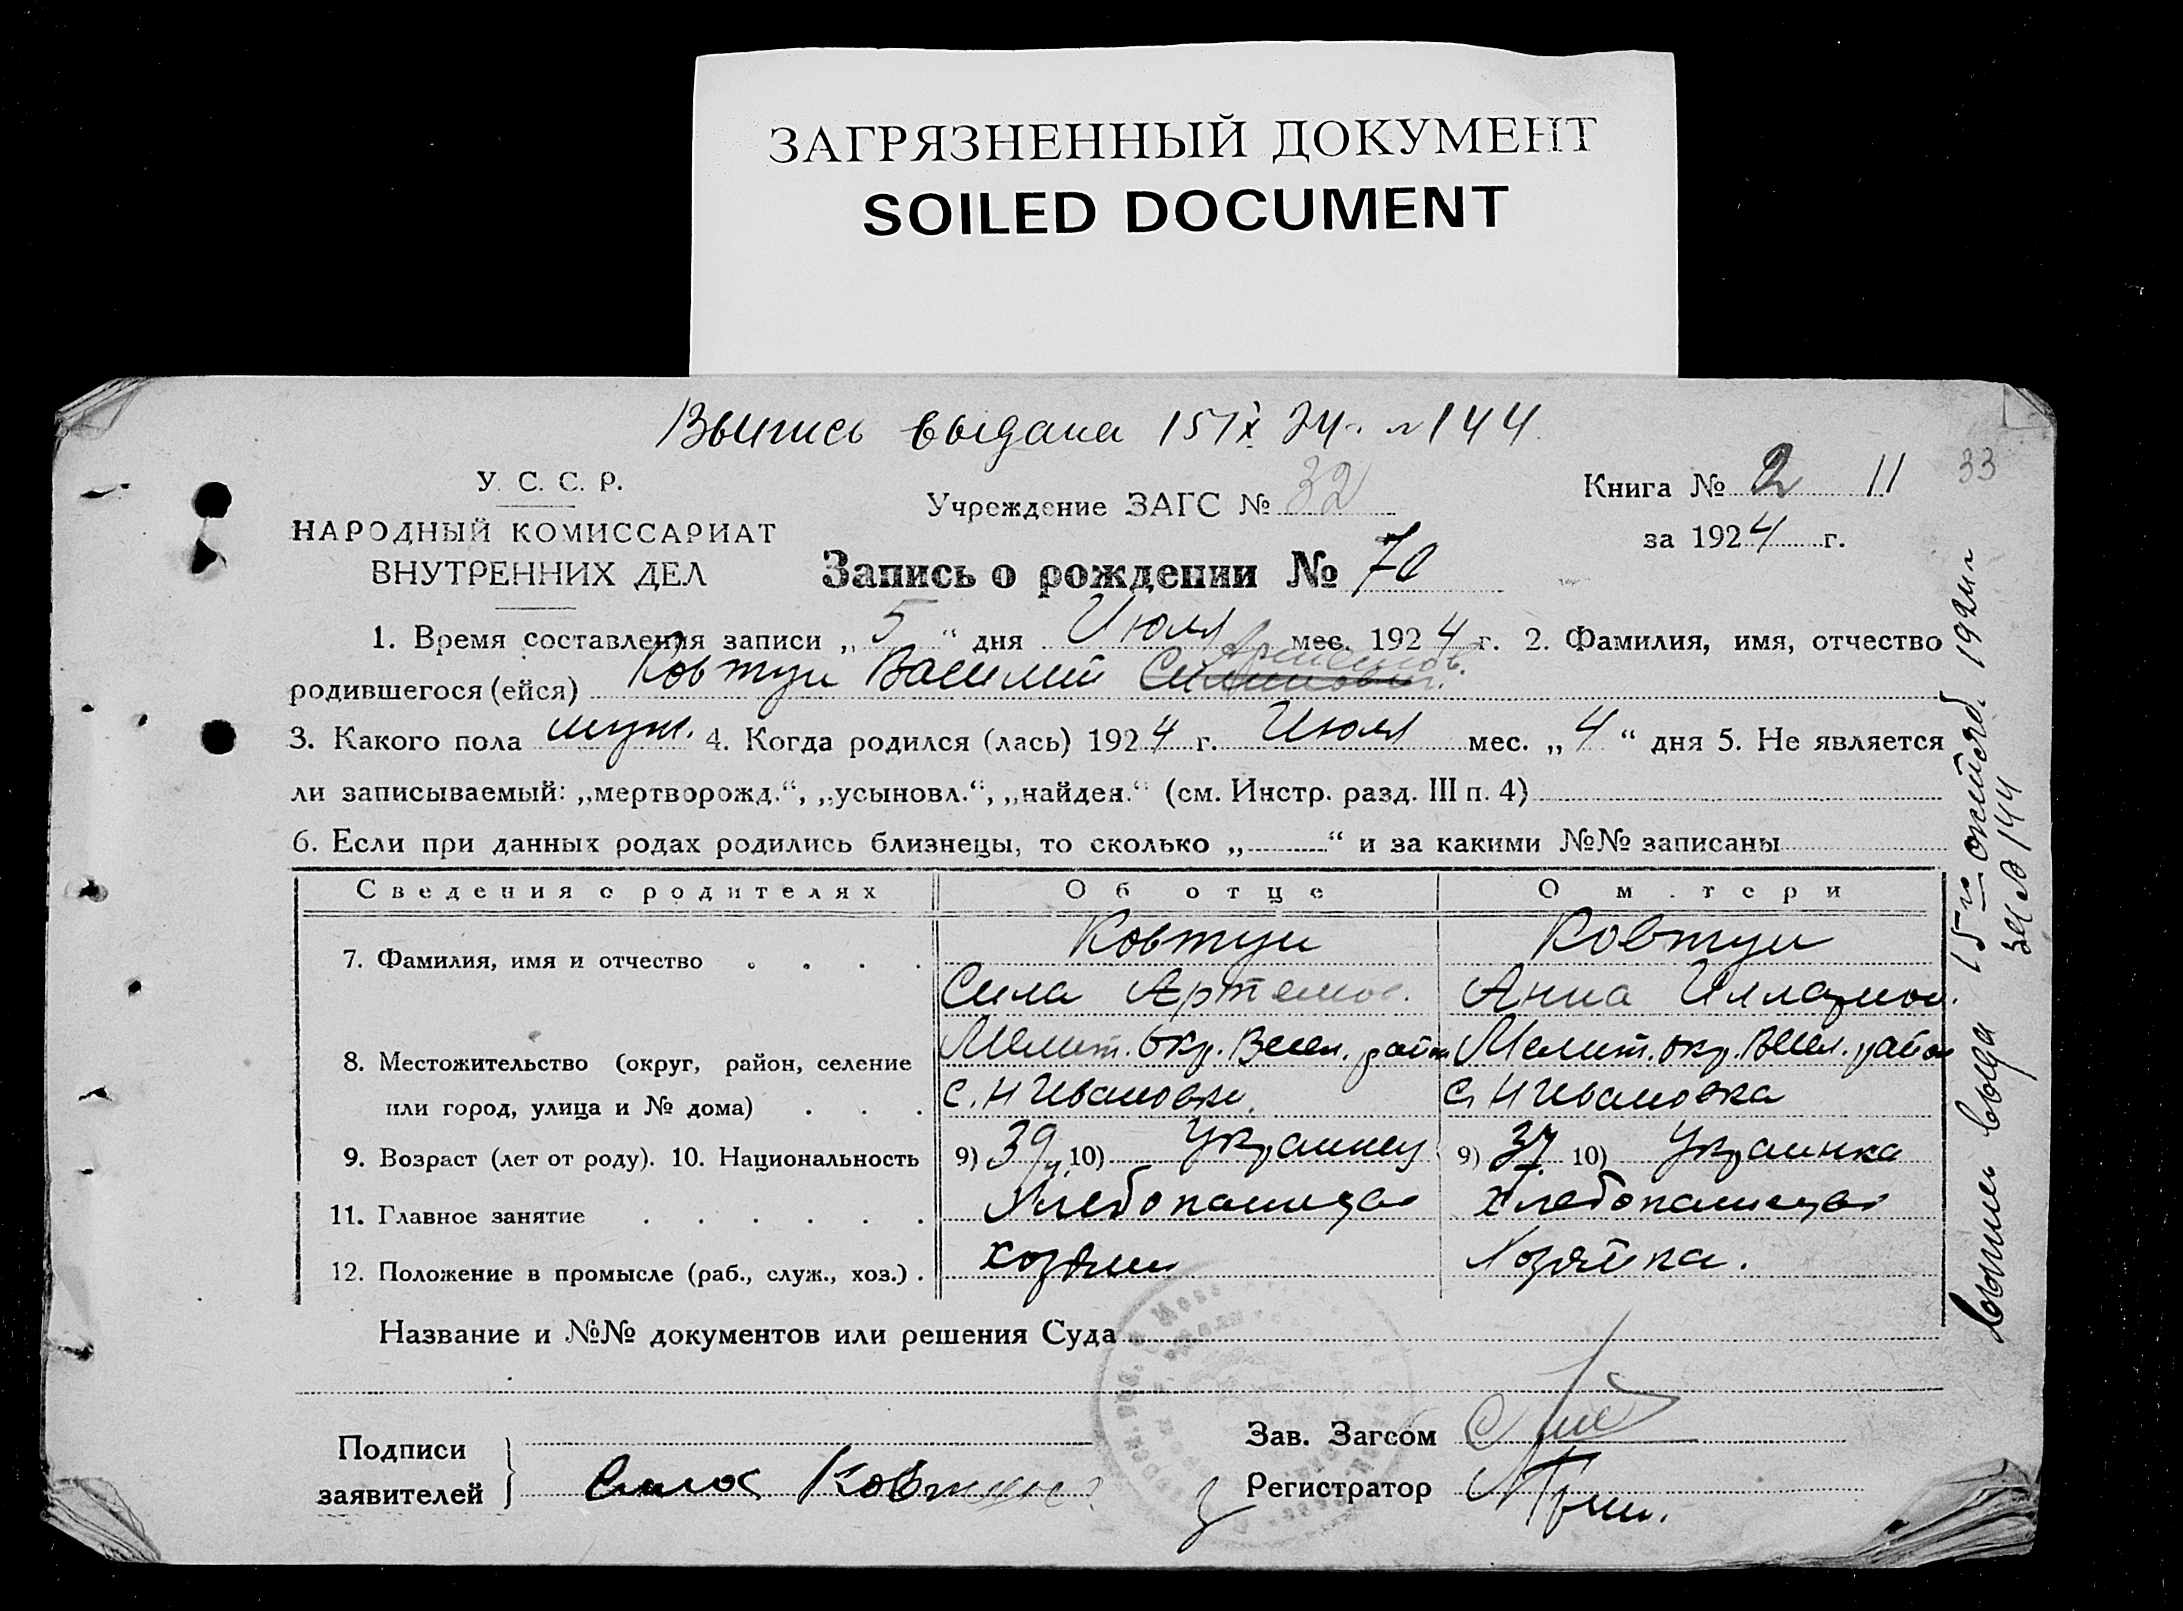 ЗАГРЯЗНЕННЫЙ ДОКУМЕНТ
SOILED DOCUMENT
Выпись выдана 15/IX 24. № 144
У. С. С. Р.
НАРОДНЫЙ КОМИССАРИАТ
ВНУТРЕННИХ ДЕЛ
Учреждение ЗАГС № 32
Книга № 2 11 33
за 1924 г.
Запись о рождении № 70
1. Время составления записи „5“ дня Июля мес. 1924 г. 2. Фамилия, имя, отчество
Артемов.
родившегося (ейся) Ковтун Василий
3. Какого пола муж. 4. Когда родился (лась) 1924 г. Июля мес. „4“ дня 5. Не является
ли записываемый: „мертворожд.“, „усыновл.“, „найден.“ (см. Инстр. разд. III п. 4)
6. Если при данных родах родились близнецы, то сколько „ “ и за какими №№ записаны
Сведения о родителях Об отце О м.тери
7. Фамилия, имя и отчество Ковтун Ковтун
Сила Артемов. Анна Иллармов.
8. Местожительство (округ, район, селение Мелит. окр. Весел. район Мелит. окр. Весел. район
или город, улица и № дома) с. Н Ивановка с. Н Ивановка
9. Возраст (лет от роду). 10. Национальность 9) 39 10) Украинец 9) 37 10) Украинка
11. Главное занятие Хлебопашество Хлебопашество
12. Положение в промысле (раб., служ., хоз.) хозяин Хозяйка.
Название и №№ документов или решения Суда
Подписи
заявителей Сила Ковтун
Зав. Загсом
Регистратор
выпись выда 15го октяб. 1924 г
за № 144